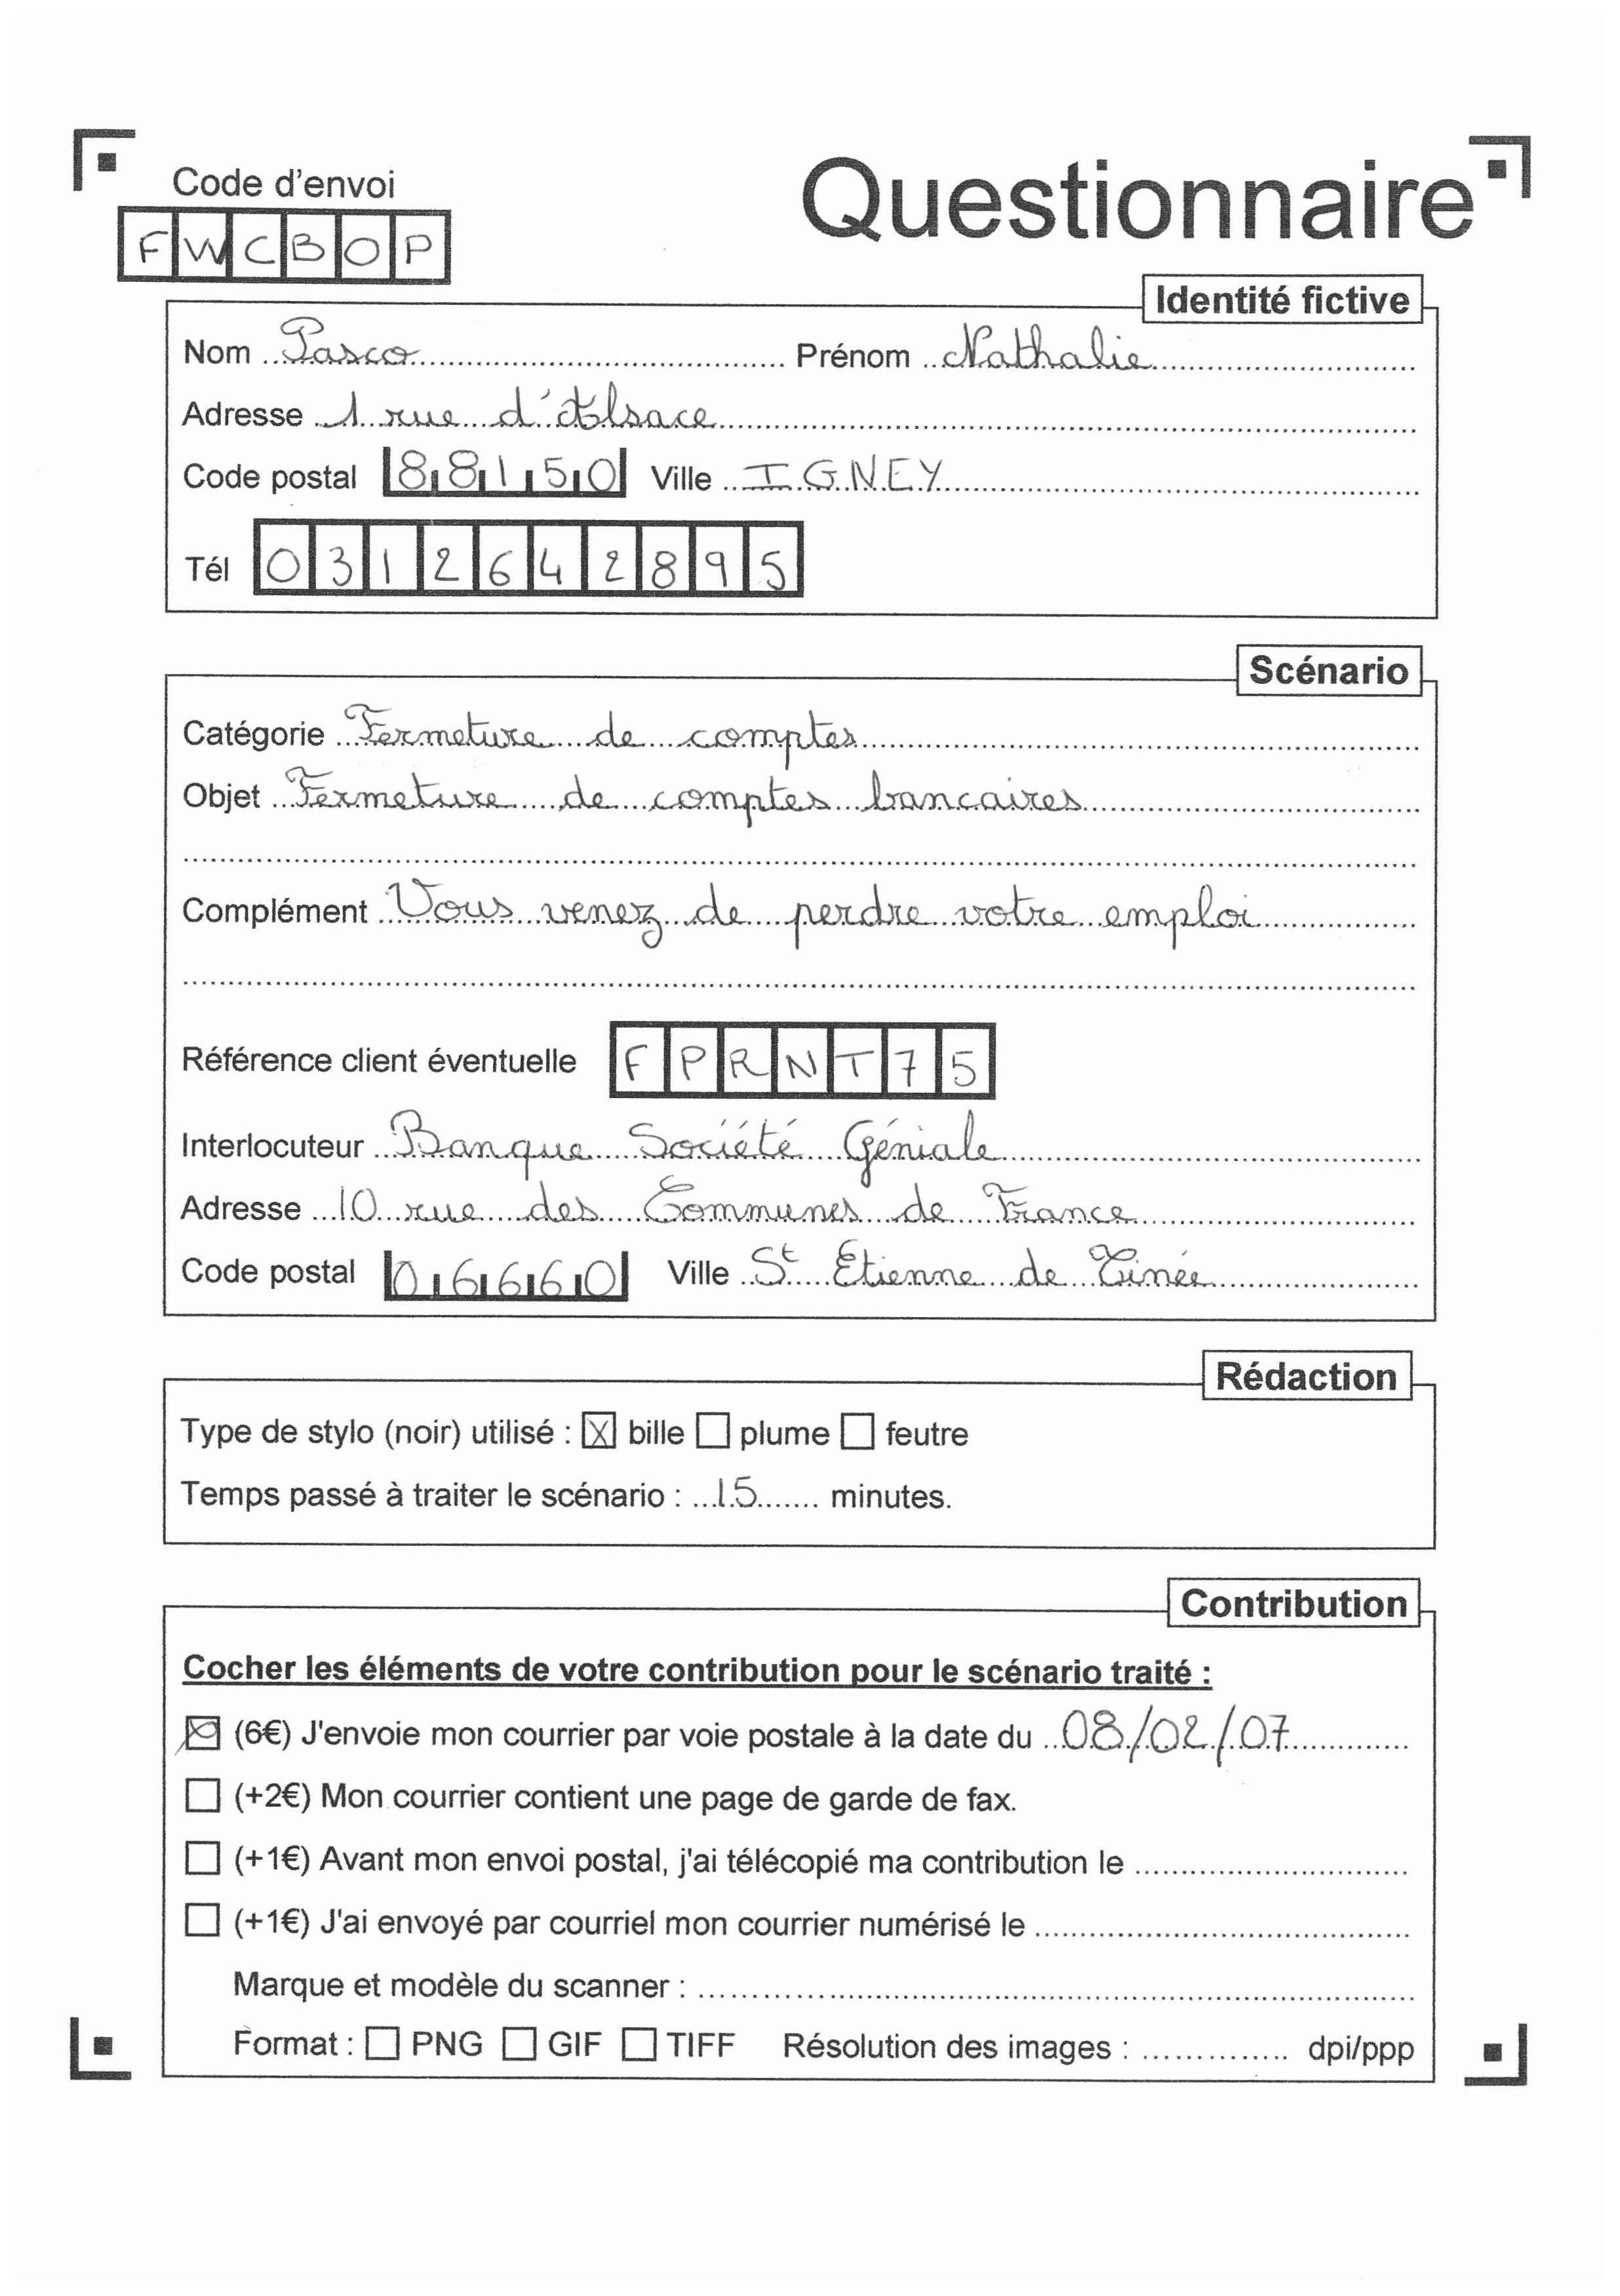 Code d'envoi
FWCBOP
Questionnaire
Identité fictive
Nom Pasco Prénom Nathalie
Adresse 1 rue d'Alsace
Code postal 88150 Ville IGNEY
Tél 0312642895
Scénario
Catégorie Fermeture de comptes
Objet Fermeture de comptes bancaires
Complément Vous venez de perdre votre emploi
Référence client éventuelle FPRNT75
Interlocuteur Banque Société Géniale
Adresse 10 rue des Communes de France
Code postal 06660 Ville St Etienne de Tinée
Rédaction
Type de stylo (noir) utilisé : X bille plume feutre
Temps passé à traiter le scénario : 15 minutes.
Contribution
Cocher les éléments de votre contribution pour le scénario traité :
X (6€) J'envoie mon courrier par voie postale à la date du 08/02/07
(+2€) Mon courrier contient une page de garde de fax.
(+1€) Avant mon envoi postal, j'ai télécopié ma contribution le
(+1€) J'ai envoyé par courriel mon courrier numérisé le
Marque et modèle du scanner :
Format : PNG GIF TIFF Résolution des images : dpi/ppp